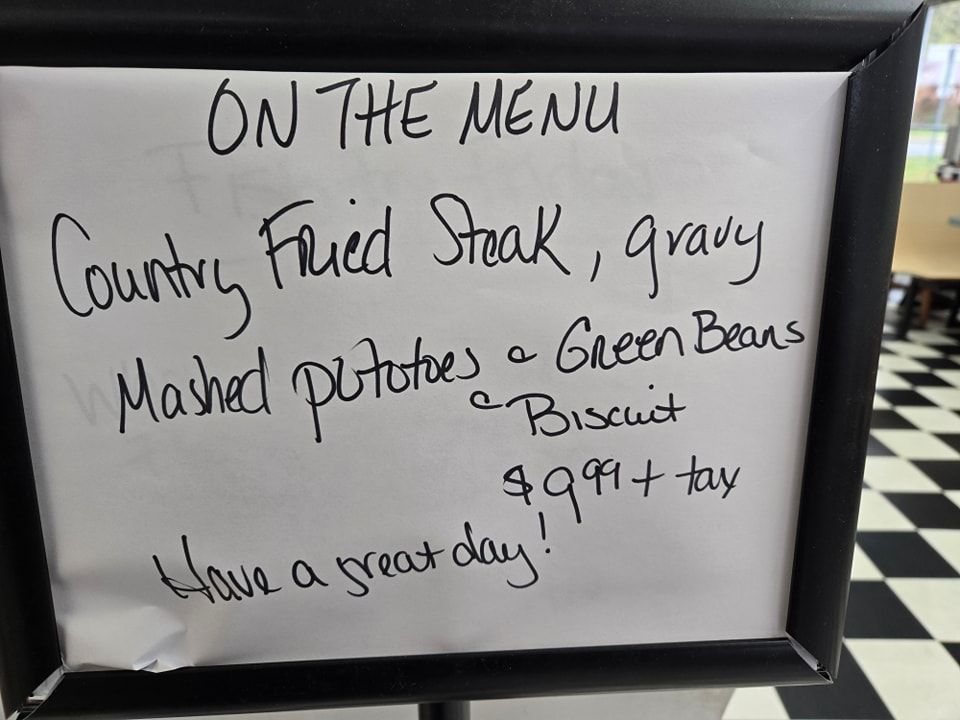 ON THE MENU
Country Fried Steak, gravy
Mashed potatoes c Green Beans
c Biscuit
$9.99 + tax
Have a great day!